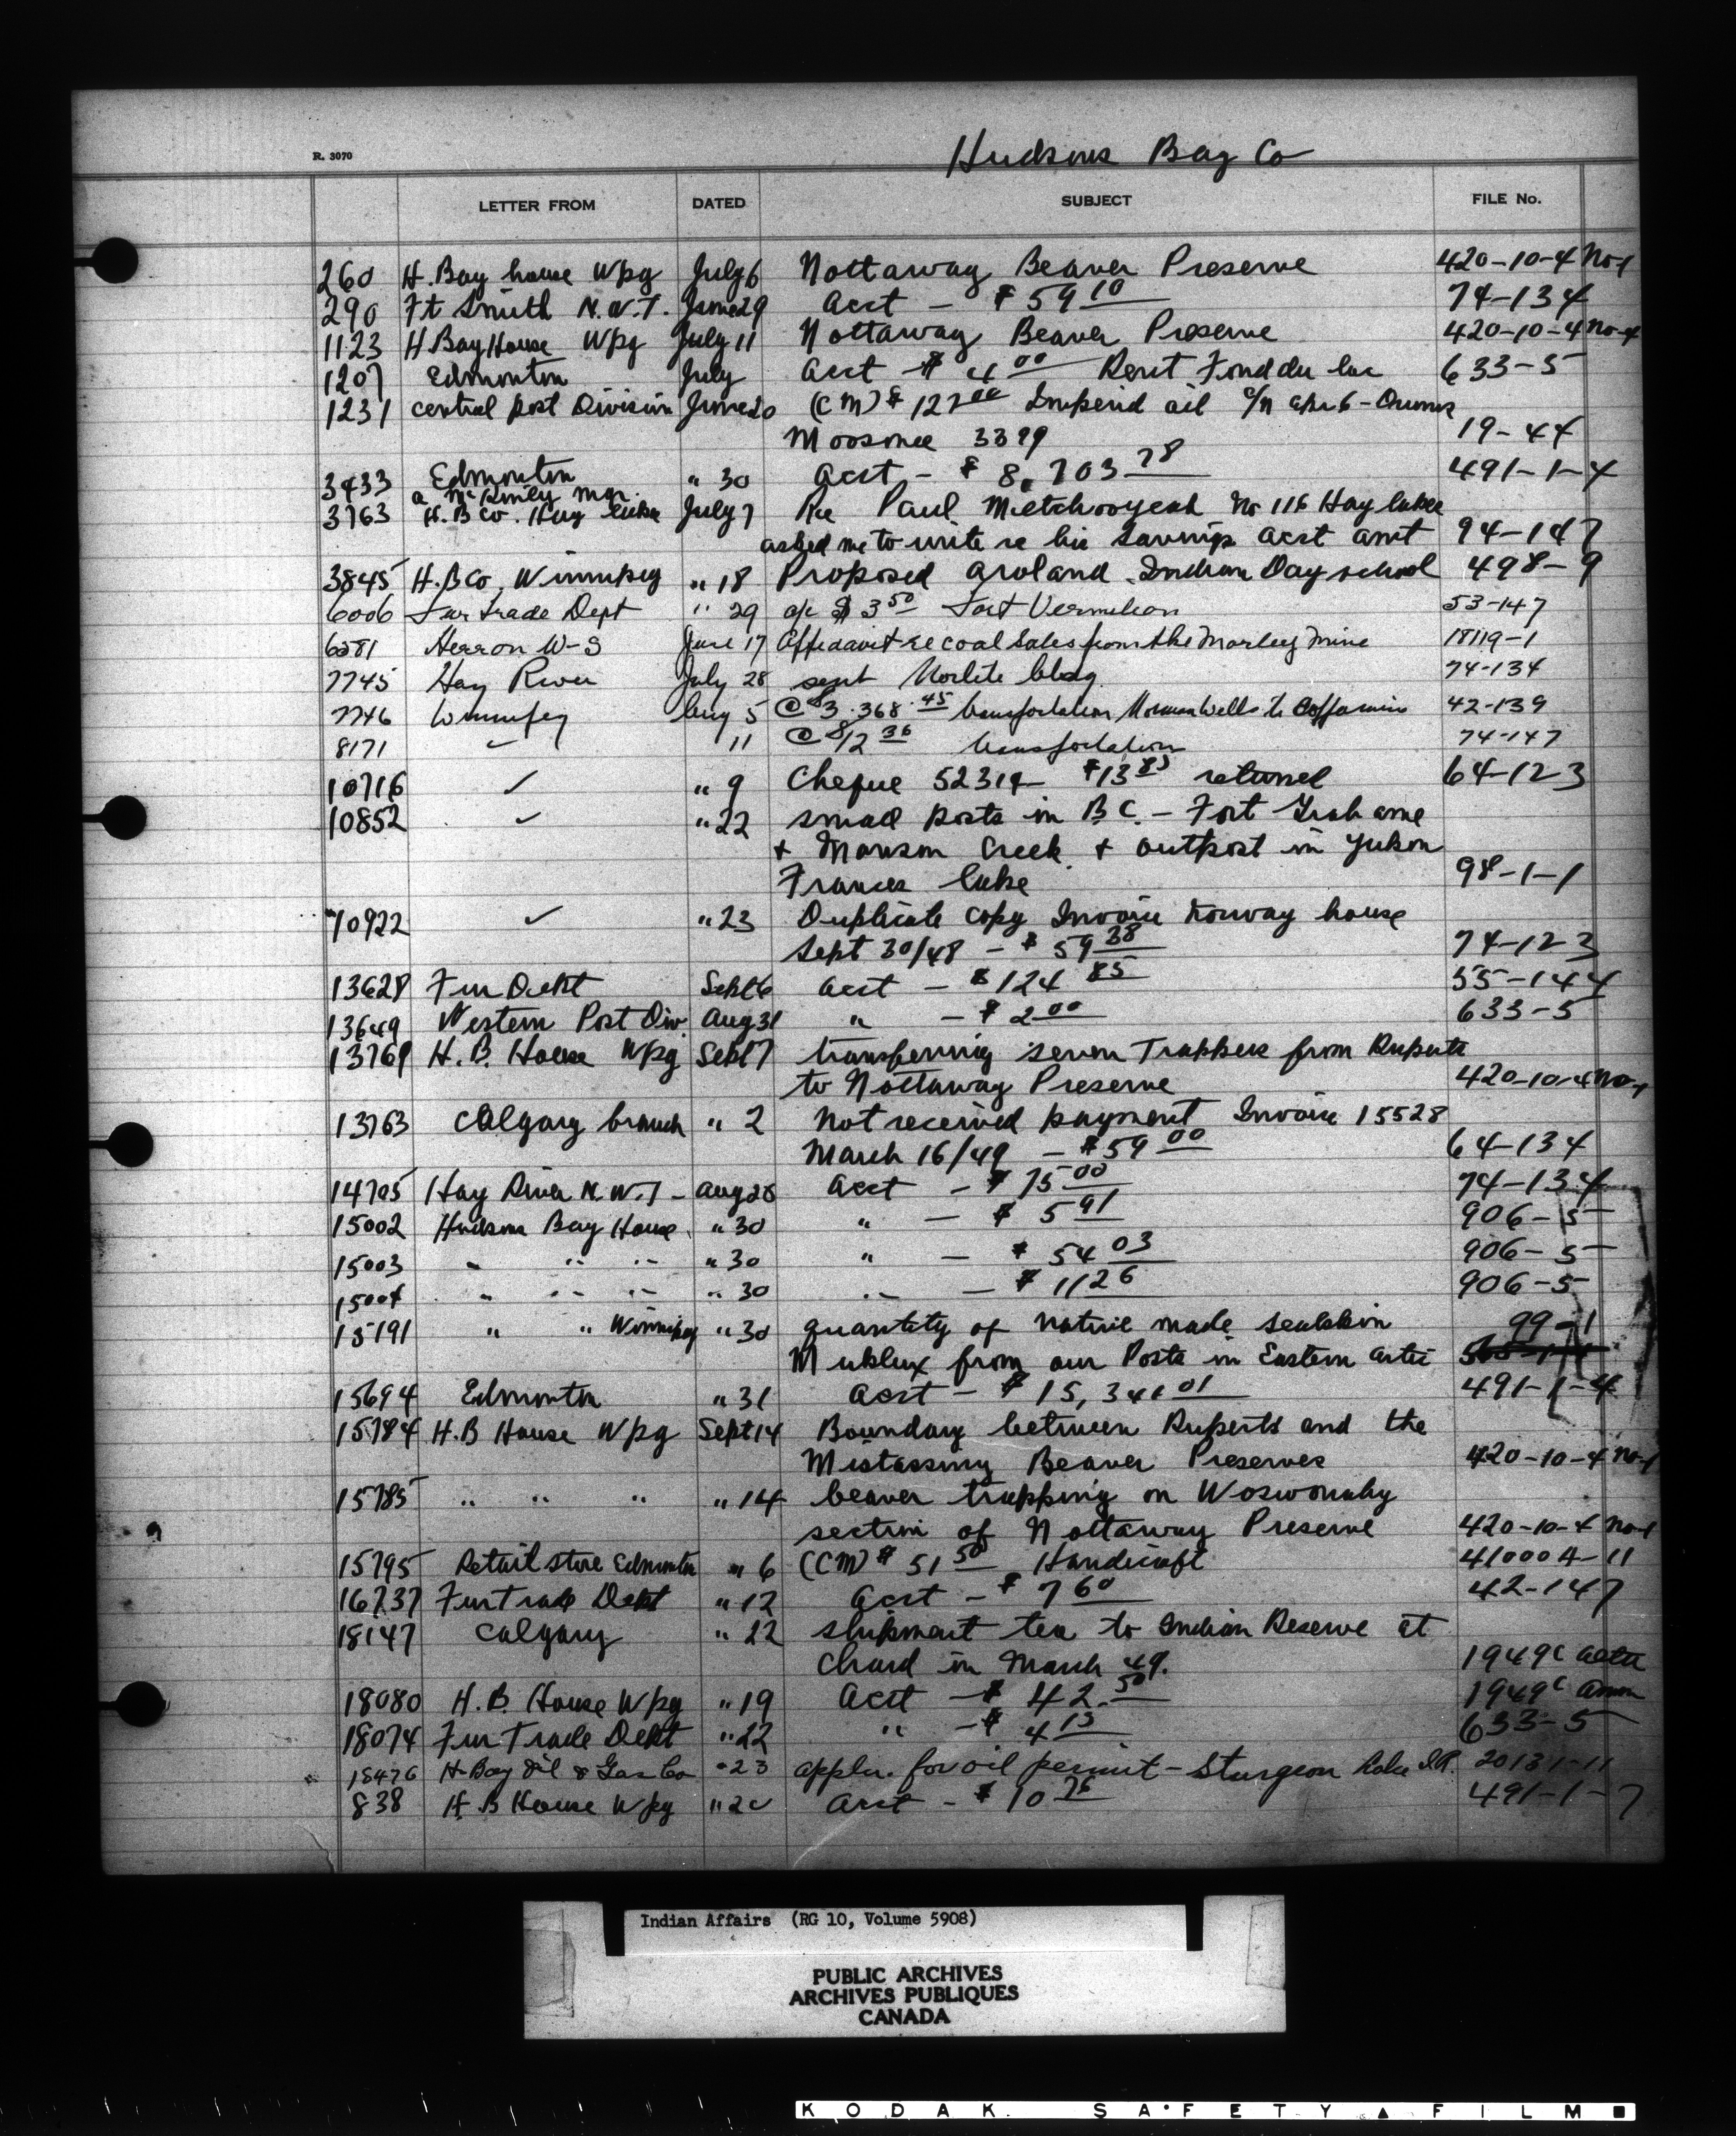 Hudsons Bay Co
R. 3070
LETTER FROM DATED SUBJECT FILE No.
260 H. Bay house Wpg July 6 Nottaway Beaver Preserve 420-10-4 No-1
290 Ft Smith N.W.T. June 29 Acct - $59 10 74-134
1123 H Bay House Wpg July 11 Nottaway Beaver Preserve 420-10-4 No-1
1207 Edmonton July Acct - $4 00 Rent Fond du lac 633-5
1231 Central post Division June 20 (CM) $ 127 00 Imperial oil Drums
Moosonee 3379 19-44
3433 Edmonton " 30 Acct - $ 8,703 78 491-1-4
a mgr.
3763 H.B Co. Hay lake July 7 Re Paul Metchooyeah No 116 Hay lake
asked me to write re his Savings Acct amt 94-147
3845 H.B Co, Winnipeg " 18 Proposed Aroland Indian Day school 498-9
6006 Fur trade Dept " 29 a/c $ 3 50 Fort Vermilion 53-147
6281 Herron W-S June 17 Affidavit re coal sales from the Morley mine 18119-1
7745 Hay River July 28 bldg. 74-134
7746 Winnipeg Aug 5 @ $3.368.45 transportation Norman Wells to Coppermine 42-139
8171 ✓ " 11 @ $12 36 transportation 74-147
10716 ✓ " 9 Cheque 52319 - $13 85 returned 64-123
10852 ✓ " 22 small posts in B.C. - Fort Grahame
+ Manson Creek + outpost in Yukon
Frances lake 98-1-1
10922 ✓ " 23 Duplicate copy Invoice Norway house
Sept 30/48 - $ 59 38 74-123
13628 Fur Dept Sept 6 acct - $124 85 55-144
13649 Western Post Div. Aug 31 " - $ 2 00 633-5
13769 H. B. House Wpg Sept 7 transferring seven Trappers from Ruperts
to Nottaway Preserve 420-10-4 No-1
13763 Calgary branch " 2 Not received payment Invoice 15528
March 16/49 - $59 00 64-134
14705 Hay River N.W.T - Aug 26 Acct - $ 75 00 74-134
15002 Hudsons Bay House " 30 " - $ 5 91 906-5
15003 " " " " 30 " - $ 54 03 906-5
15004 " " " " 30 " - $ 11 26 906-5
15191 " " Winnipeg " 30 quantity of native made sealskin 99-1
Muklux from our Posts in Eastern Artic
15694 Edmonton " 31 Acct - $ 15,341 01 491-1-4
15784 H.B House Wpg Sept 14 Boundary between Ruperts and the
Mistassiny Beaver Preserves 420-10-4 No-1
15785 " " " " 14 beaver trapping on Woswonaby
section of Nottaway Preserve 420-10-4 No-1
15795 Retail store Edmonton " 6 (CM) $ 51 50 Handicraft 41000A-11
16737 Fur trade Dept " 12 Acct - $ 7 60 42-147
18147 Calgary " 22 shipment tea to Indian Reserve at
Chard in March 49. 1949C
18080 H.B. House Wpg " 19 Acct - $ 42.50 1949C
18074 Fur Trade Dept " 22 " - $ 4 15 633-5
18476 H Bay Oil & Gas Co " 23 appln. for oil permit - Sturgeon Lake I.R. 20131-11
838 H. B House Wpg " 20 Acct - $ 10 76 491-1-7
Indian Affairs (RG 10, Volume 5908)
PUBLIC ARCHIVES
ARCHIVES PUBLIQUES
CANADA
KODAK SAFETY FILM